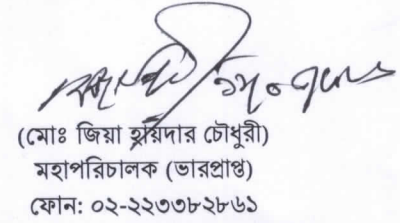 (মোঃ জিয়া হায়দার চৌধুরী)
মহাপরিচালক (ভারপ্রাপ্ত)
ফোন: ০২-২২৩৩৮২৮৬১